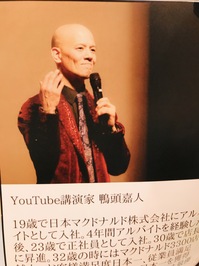 YouTube講演家 鴨頭嘉人
19歳で日本マクドナルド株式会社にアル
イトとして入社。4年間アルバイトを経験し
後、23歳で正社員として入社。30歳で店長
に昇進。32歳の時にはマクドナルド3300店
お客様満足度日本一、従業員満足